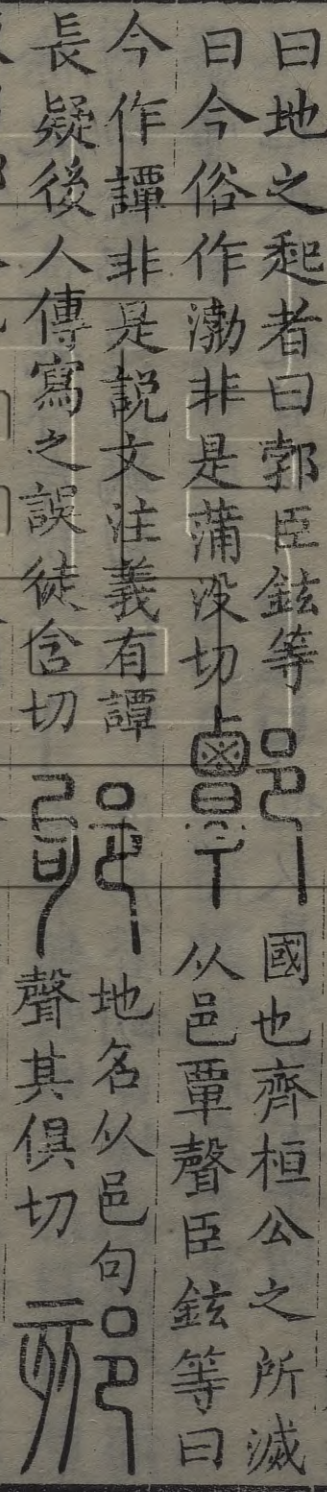 曰地之起者曰郣臣鉉等
曰今俗作渤非是蒲没切
國也齊桓公之所滅
从邑覃聲臣鉉等曰
今作譚非是說文注義有譚
長疑後人傳寫之誤徒含切
邭
地名从邑句
聲其俱切
郂